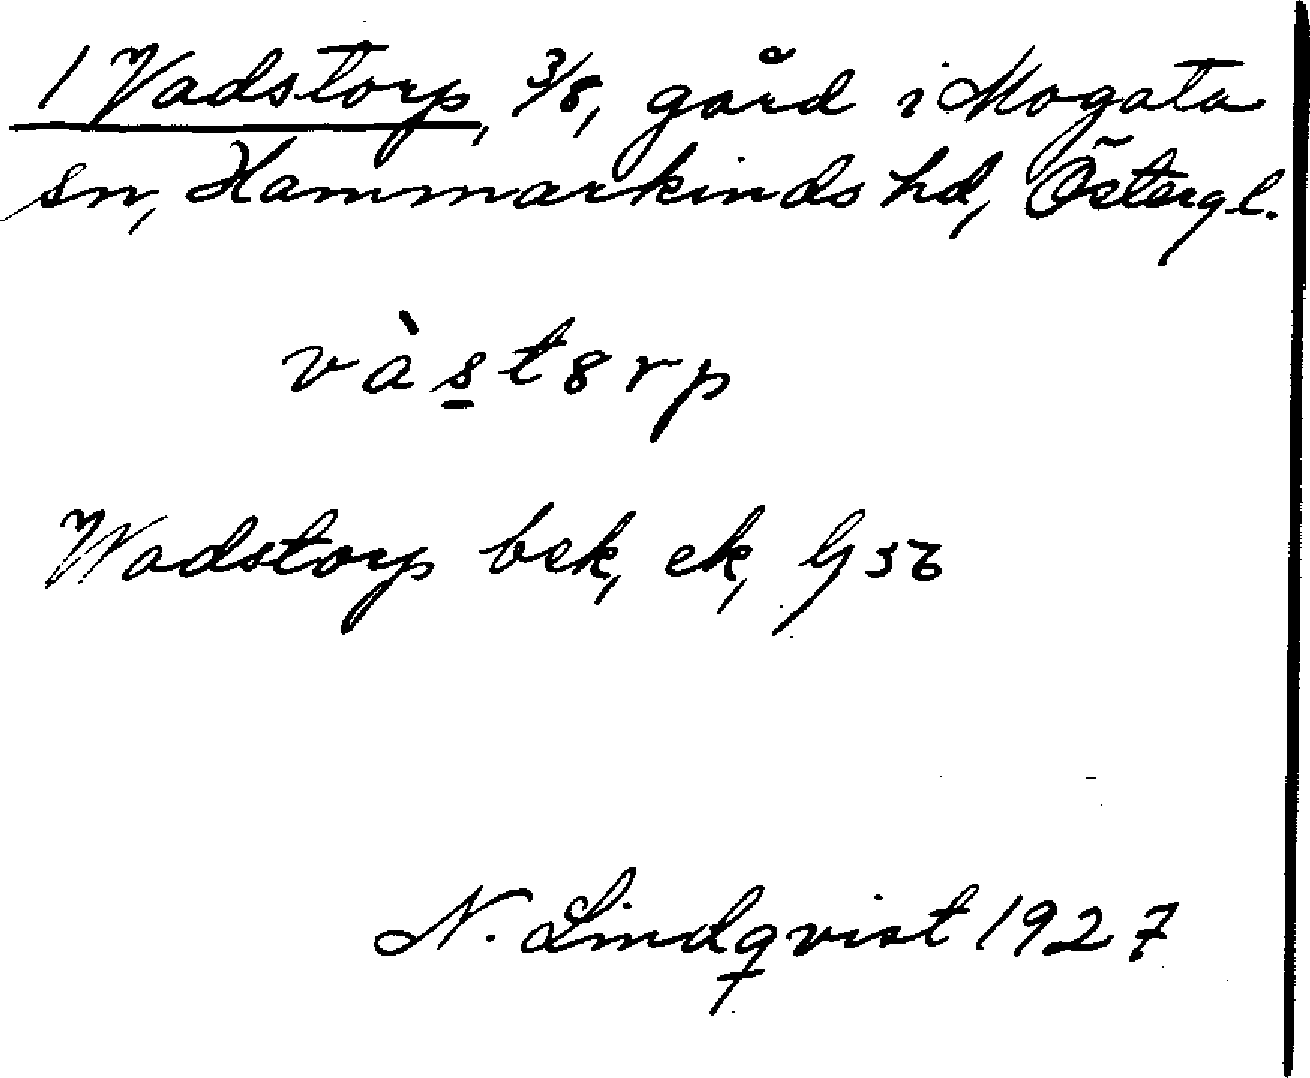 1 Vadstorp, 3/8, gård i Mogata
sn, Hammarkinds hd, Östergl.
vàs̲t8rp
Wadstorp bek, ek, G 56
N. Lindqvist 1927